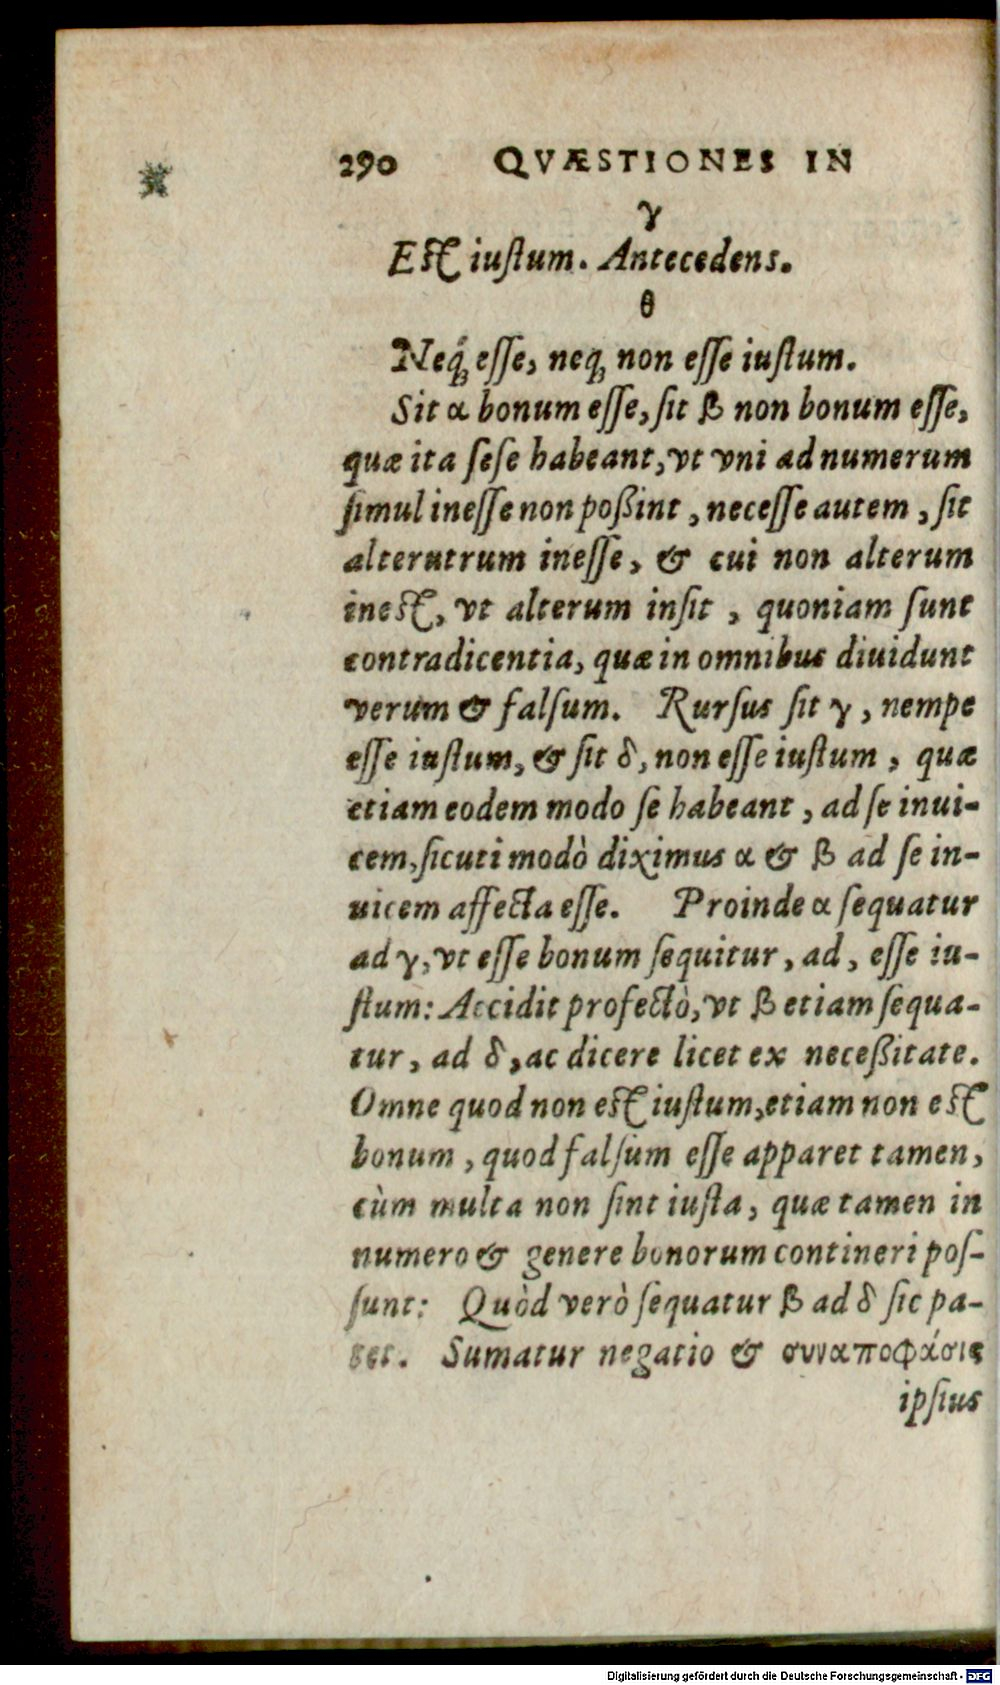 290 QVÆSTIONES IN
γ
Est iustum. Antecedens.
θ
Neq́; esse, neq; non esse iustum.
Sit α bonum esse, sit β non bonum esse,
quæ ita sese habeant, vt vni ad numerum
simul inesse non poßint, necesse autem, sit
alterutrum inesse, & cui non alterum
inest, vt alterum insit, quoniam sunt
contradicentia, quæ in omnibus diuidunt
verum & falsum. Rursus sit γ, nempe
esse iustum, & sit δ, non esse iustum, quæ
etiam eodem modo se habeant, ad se inui-
cem, sicuti modò diximus α & β ad se in-
uicem affecta esse. Proinde α sequatur
ad γ, vt esse bonum sequitur, ad, esse iu-
stum: Accidit profectò, vt β etiam sequa-
tur, ad δ, ac dicere licet ex neceßitate.
Omne quod non est iustum, etiam non est
bonum, quod falsum esse apparet tamen,
cùm multa non sint iusta, quæ tamen in
numero & genere bonorum contineri pos-
sunt: Quòd verò sequatur β ad δ sic pa-
tet. Sumatur negatio & συναποφάσις
ipsius
Digitalisierung gefördert durch die Deutsche Forschungsgemeinschaft - DFG